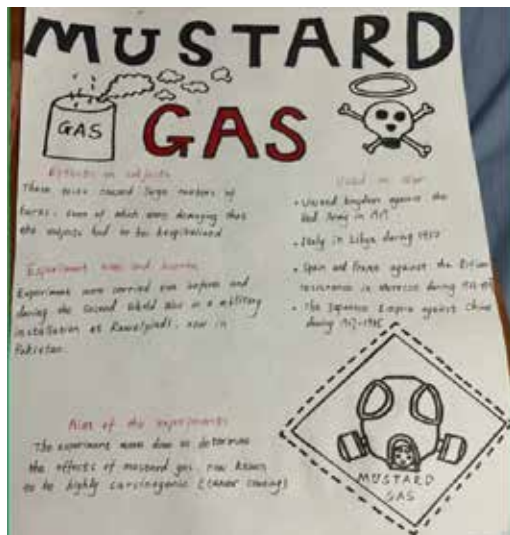 MUSTARD
GAS
GAS
Effects on subjects
These tests caused large numbers of
burns, some of which were damaging that
the subjects had to be hospitalized
Experiment was
Experiment were carried out before and
during the Second World War in a military
installation at Rawalpindi, now in
Pakistan.
Aim of the experiments
The experiment were done to determine
the effects of mustard gas, now known
to be highly carcinogenic (cancer causing)
Used in war
• United kingdom against the
Red Army in
• Italy in Libya during
• Spain and France against the
resistance in morocco during
• The Japanese Empire against China
during
MUSTARD
GAS